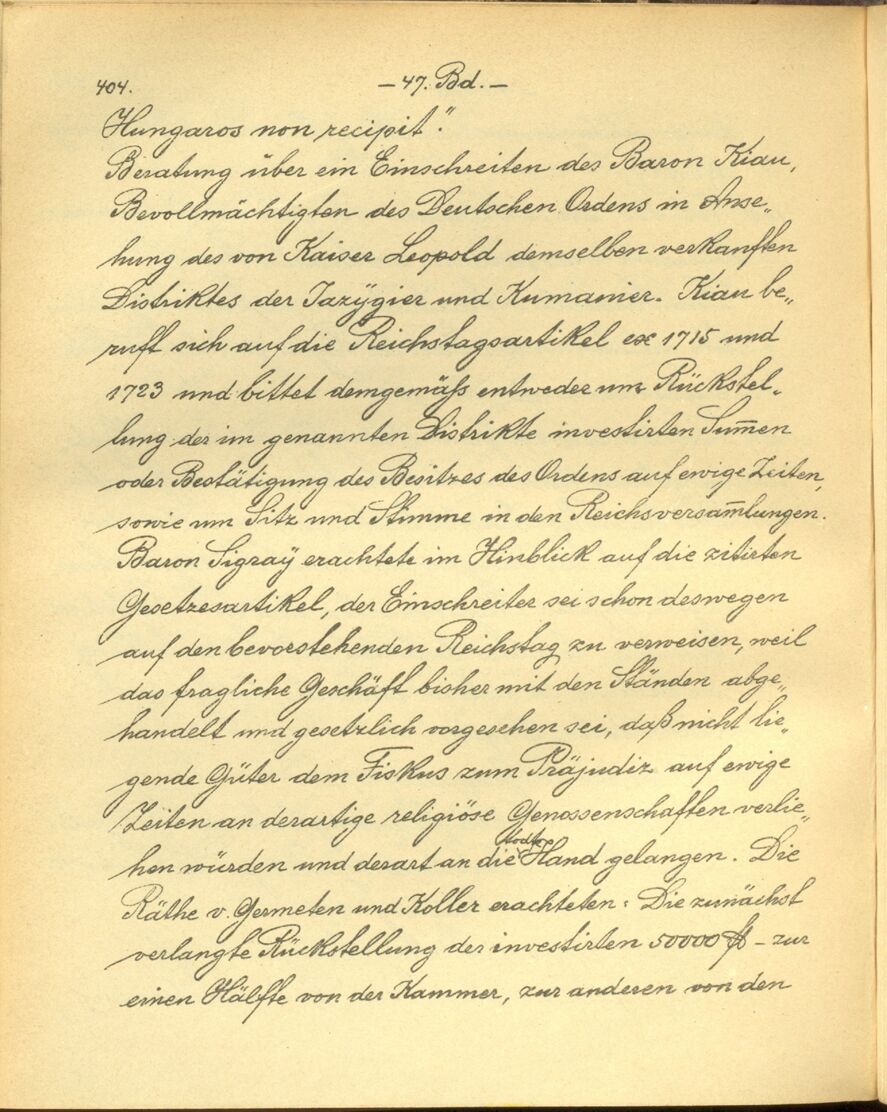 404. – 47. Bd. –
Hungaros non recipit".
Beratung über ein Einschreiten des Baron Kiau,
Bevollmächtigten des Deutschen Ordens in Anse„
hung des von Kaiser Leopold demselben verkauften
Distriktes der Jazÿgier und Kumanier. Kiau be„
ruft sich auf die Reichstagsartikel ex 1715 und
1723 und bittet demgemäß entweder um Rückstel„
lung der im genannten Distrikte investirten Sum̅en
oder Bestätigung des Besitzes des Ordens auf ewige Zeiten,
sowie um Sitz und Stimme in den Reichsversam̅lungen.
Baron Sigraÿ erachtete im Hinblick auf die zitirten
Gesetzesartikel, der Einschreiter sei schon deswegen
auf den bevorstehenden Reichstag zu verweisen, weil
das fragliche Geschäft bisher mit den Ständen abge„
handelt und gesetzlich vorgesehen sei, daß nicht lie„
gende Güter dem Fiskus zum Präjudiz auf ewige
Zeiten an derartige religiöse Genossenschaften verlie„
hen würden und derart an die todte Hand gelangen. Die
Räthe v. Germeten und Koller erachteten: Die zunächst
verlangte Rückstellung der investirten 50000 fl – zur
einen Hälfte von der Kammer, zur anderen von den